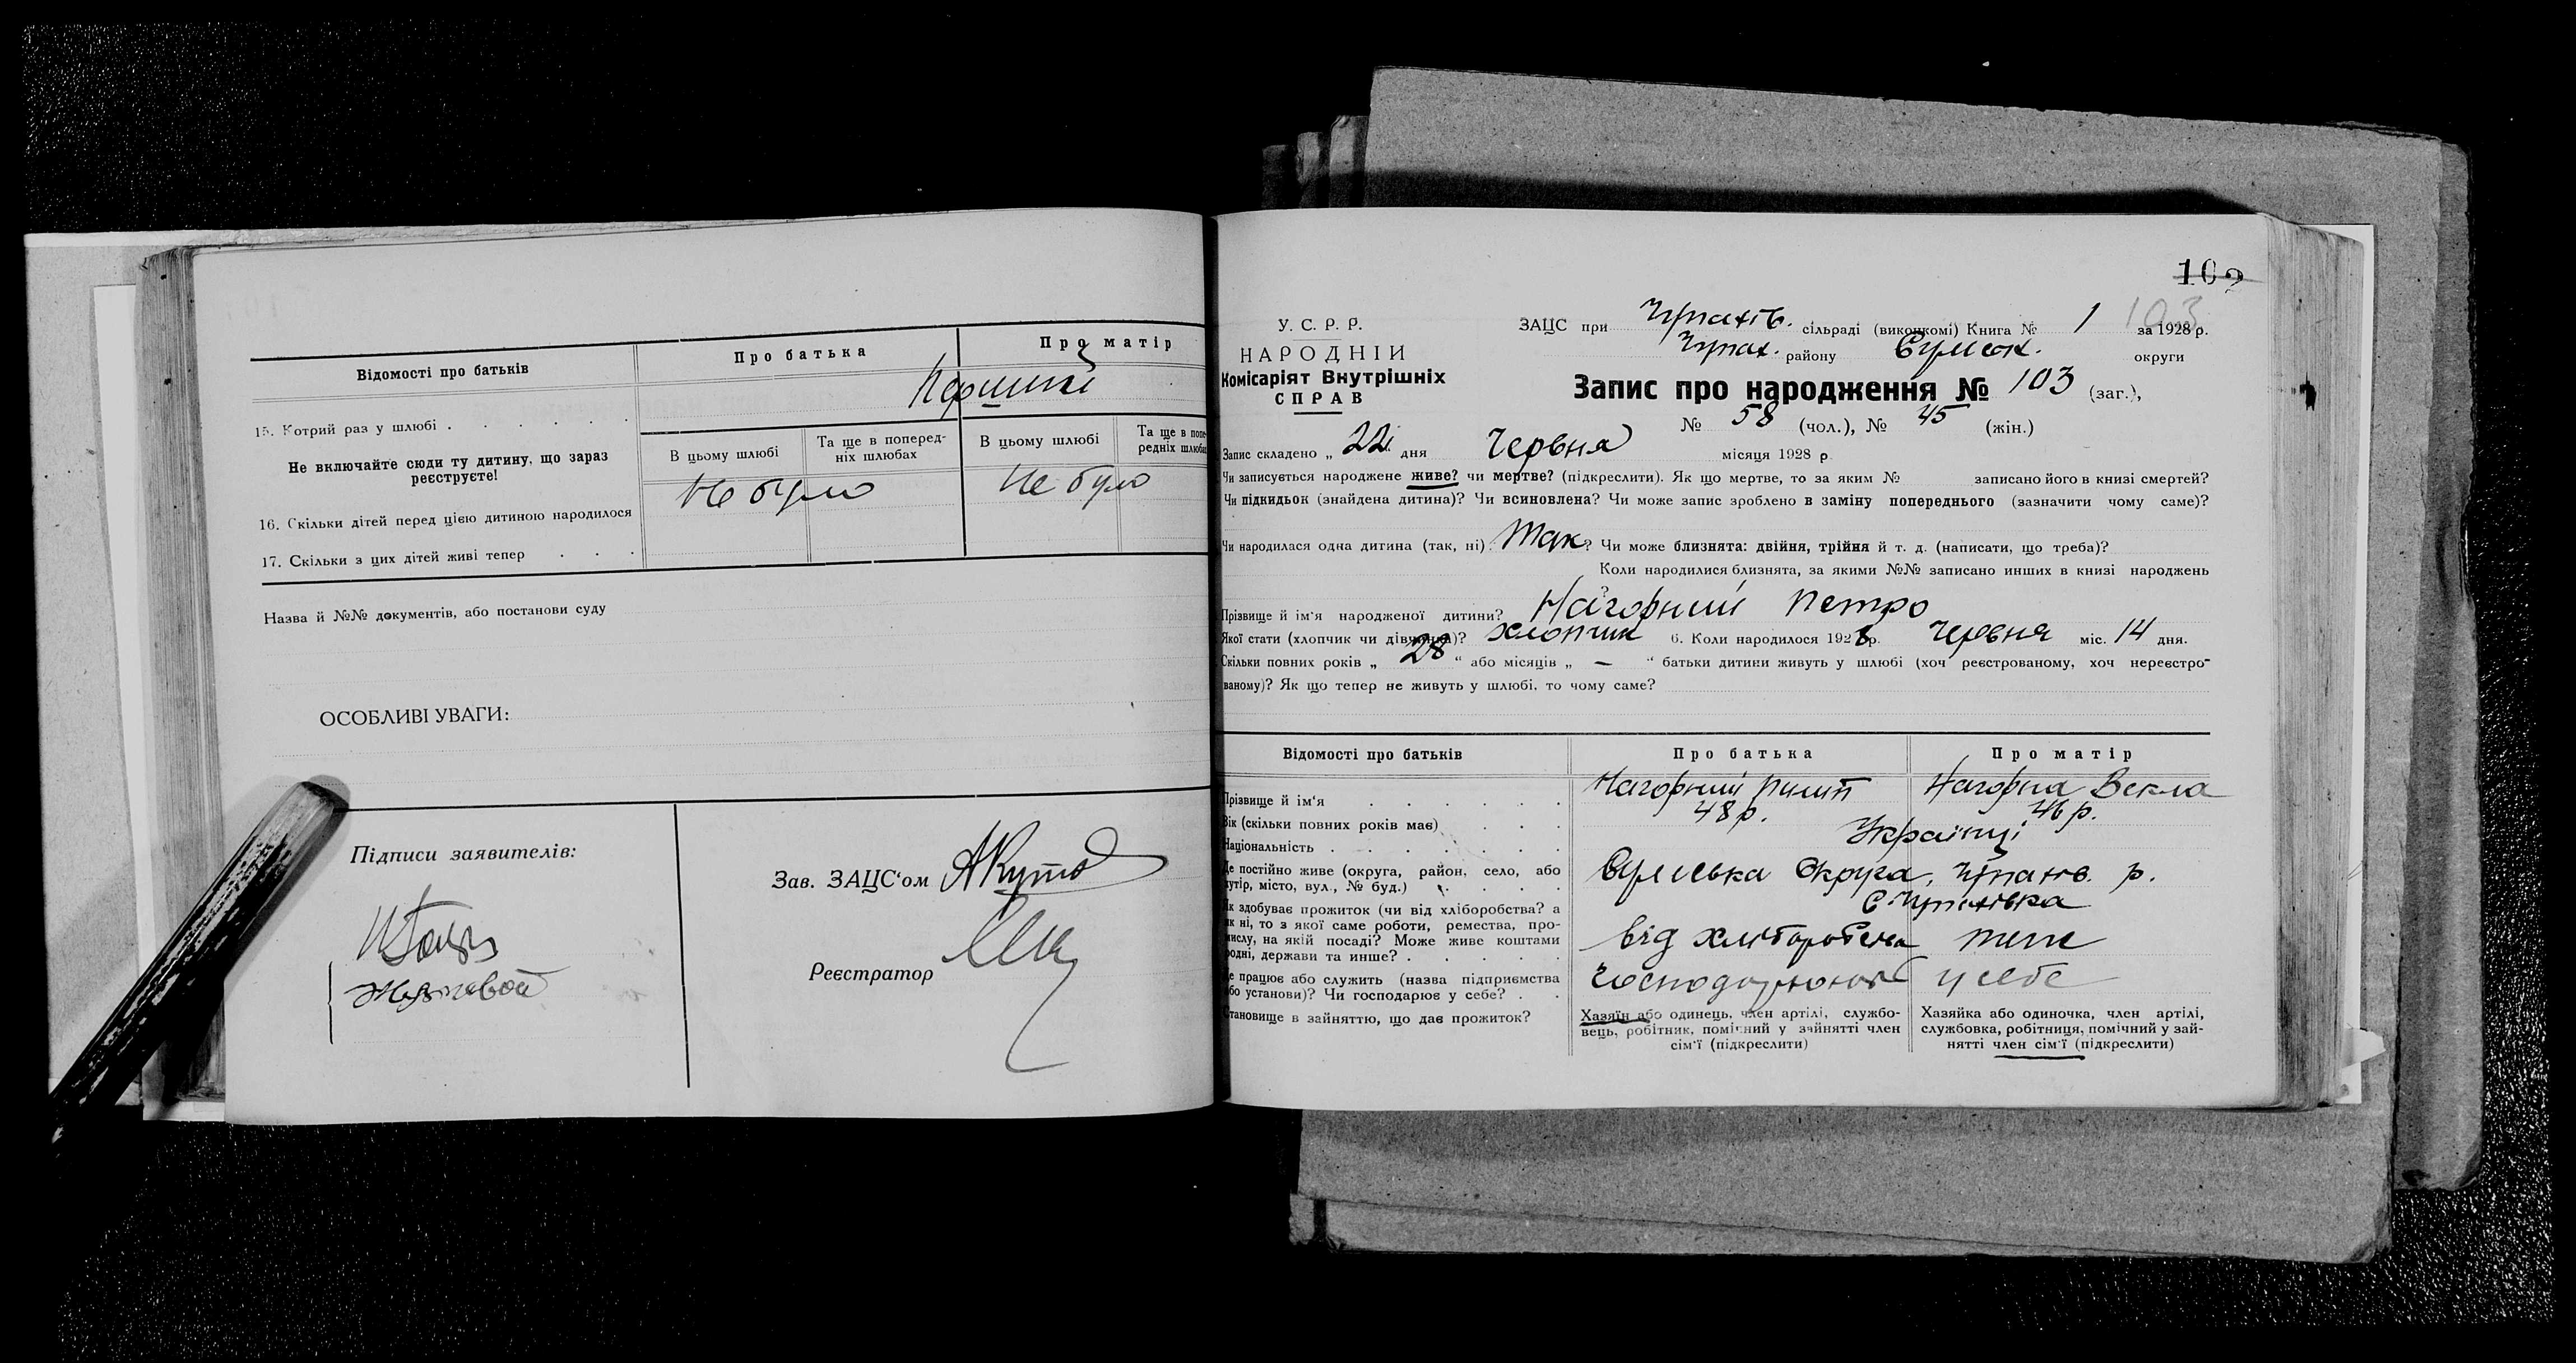 Відомості про батьків
Про батька
Про матір
15. Котрий раз у шлюбі . . . . . .
Перший
Не включайте сюди ту дитину, що зараз
реєструєте!
В цьому шлюбі
Та ще в поперед-
ніх шлюбах
В цьому шлюбі
Та ще в попе-
редніх шлюбах
16. Скільки дітей перед цією дитиною народилося
Не було
Не було
17. Скільки з цих дітей живі тепер . . .
Назва й №№ документів, або постанови суду
ОСОБЛИВІ УВАГИ:
Підписи заявителів:
Зав. ЗАЦС'ом
Реєстратор
102
103
У. С. Р. Р.
НАРОДНІЙ
Комісаріят Внутрішніх
СПРАВ
ЗАЦС при сільраді (виконкомі) Книга № 1 за 1928 р.
району Сумськ. округи
Запис про народження № 103 (заг.),
№ 58 (чол.), № 45 (жін.)
Запис складено „ 22 дня Червня місяця 1928 р
Чи записується народжене живе? чи мертве? (підкреслити). Як що мертве, то за яким № записано його в книзі смертей?
Чи підкидьок (знайдена дитина)? Чи всиновлена? Чи може запис зроблено в заміну попереднього (зазначити чому саме)?
Чи народилася одна дитина (так, ні) Так? Чи може близнята: двійня, трійня й т. д. (написати, що треба)?
Коли народилися близнята, за якими №№ записано инших в книзі народжень
?
Прізвище й ім'я народженої дитини? Нагорний Петро
Якої стати (хлопчик чи дівчинка)? хлопчик 6. Коли народилося 1928 р. Червня міс. 14 дня.
Скільки повних років „ 28 " або місяців „ — " батьки дитини живуть у шлюбі (хоч реєстрованому, хоч нереєстро-
ваному)? Як що тепер не живуть у шлюбі, то чому саме?
Відомості про батьків
Про батька
Про матір
Прізвище й ім'я . . . . . .
Нагорний Пилип
Нагорна Векла
Вік (скільки повних років має) . . .
48 р.
46 р.
Національність . . . . . . .
Українці
Де постійно живе (округа, район, село, або
хутір, місто, вул., № буд.) . . . .
Сумська Округа, р.
Як здобуває прожиток (чи від хліборобства? а
як ні, то з якої саме роботи, ремества, про-
мислу, на якій посаді? Може живе коштами
родні, держави та инше? . . . . .
від хліборобства
теж
Де працює або служить (назва підприємства
або установи)? Чи господарює у себе? . .
Господарюють у себе
Становище в зайняттю, що дає прожиток?
Хазяїн або одинець, член артілі, службо-
вець, робітник, помічний у зайнятті член
сім'ї (підкреслити)
Хазяйка або одиночка, член артілі,
службовка, робітниця, помічний у зай-
нятті член сім'ї (підкреслити)